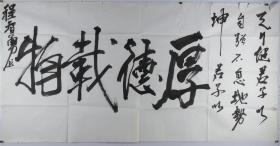 天行健君子以
自强不息地势
坤君子以
厚德载物
程有勇